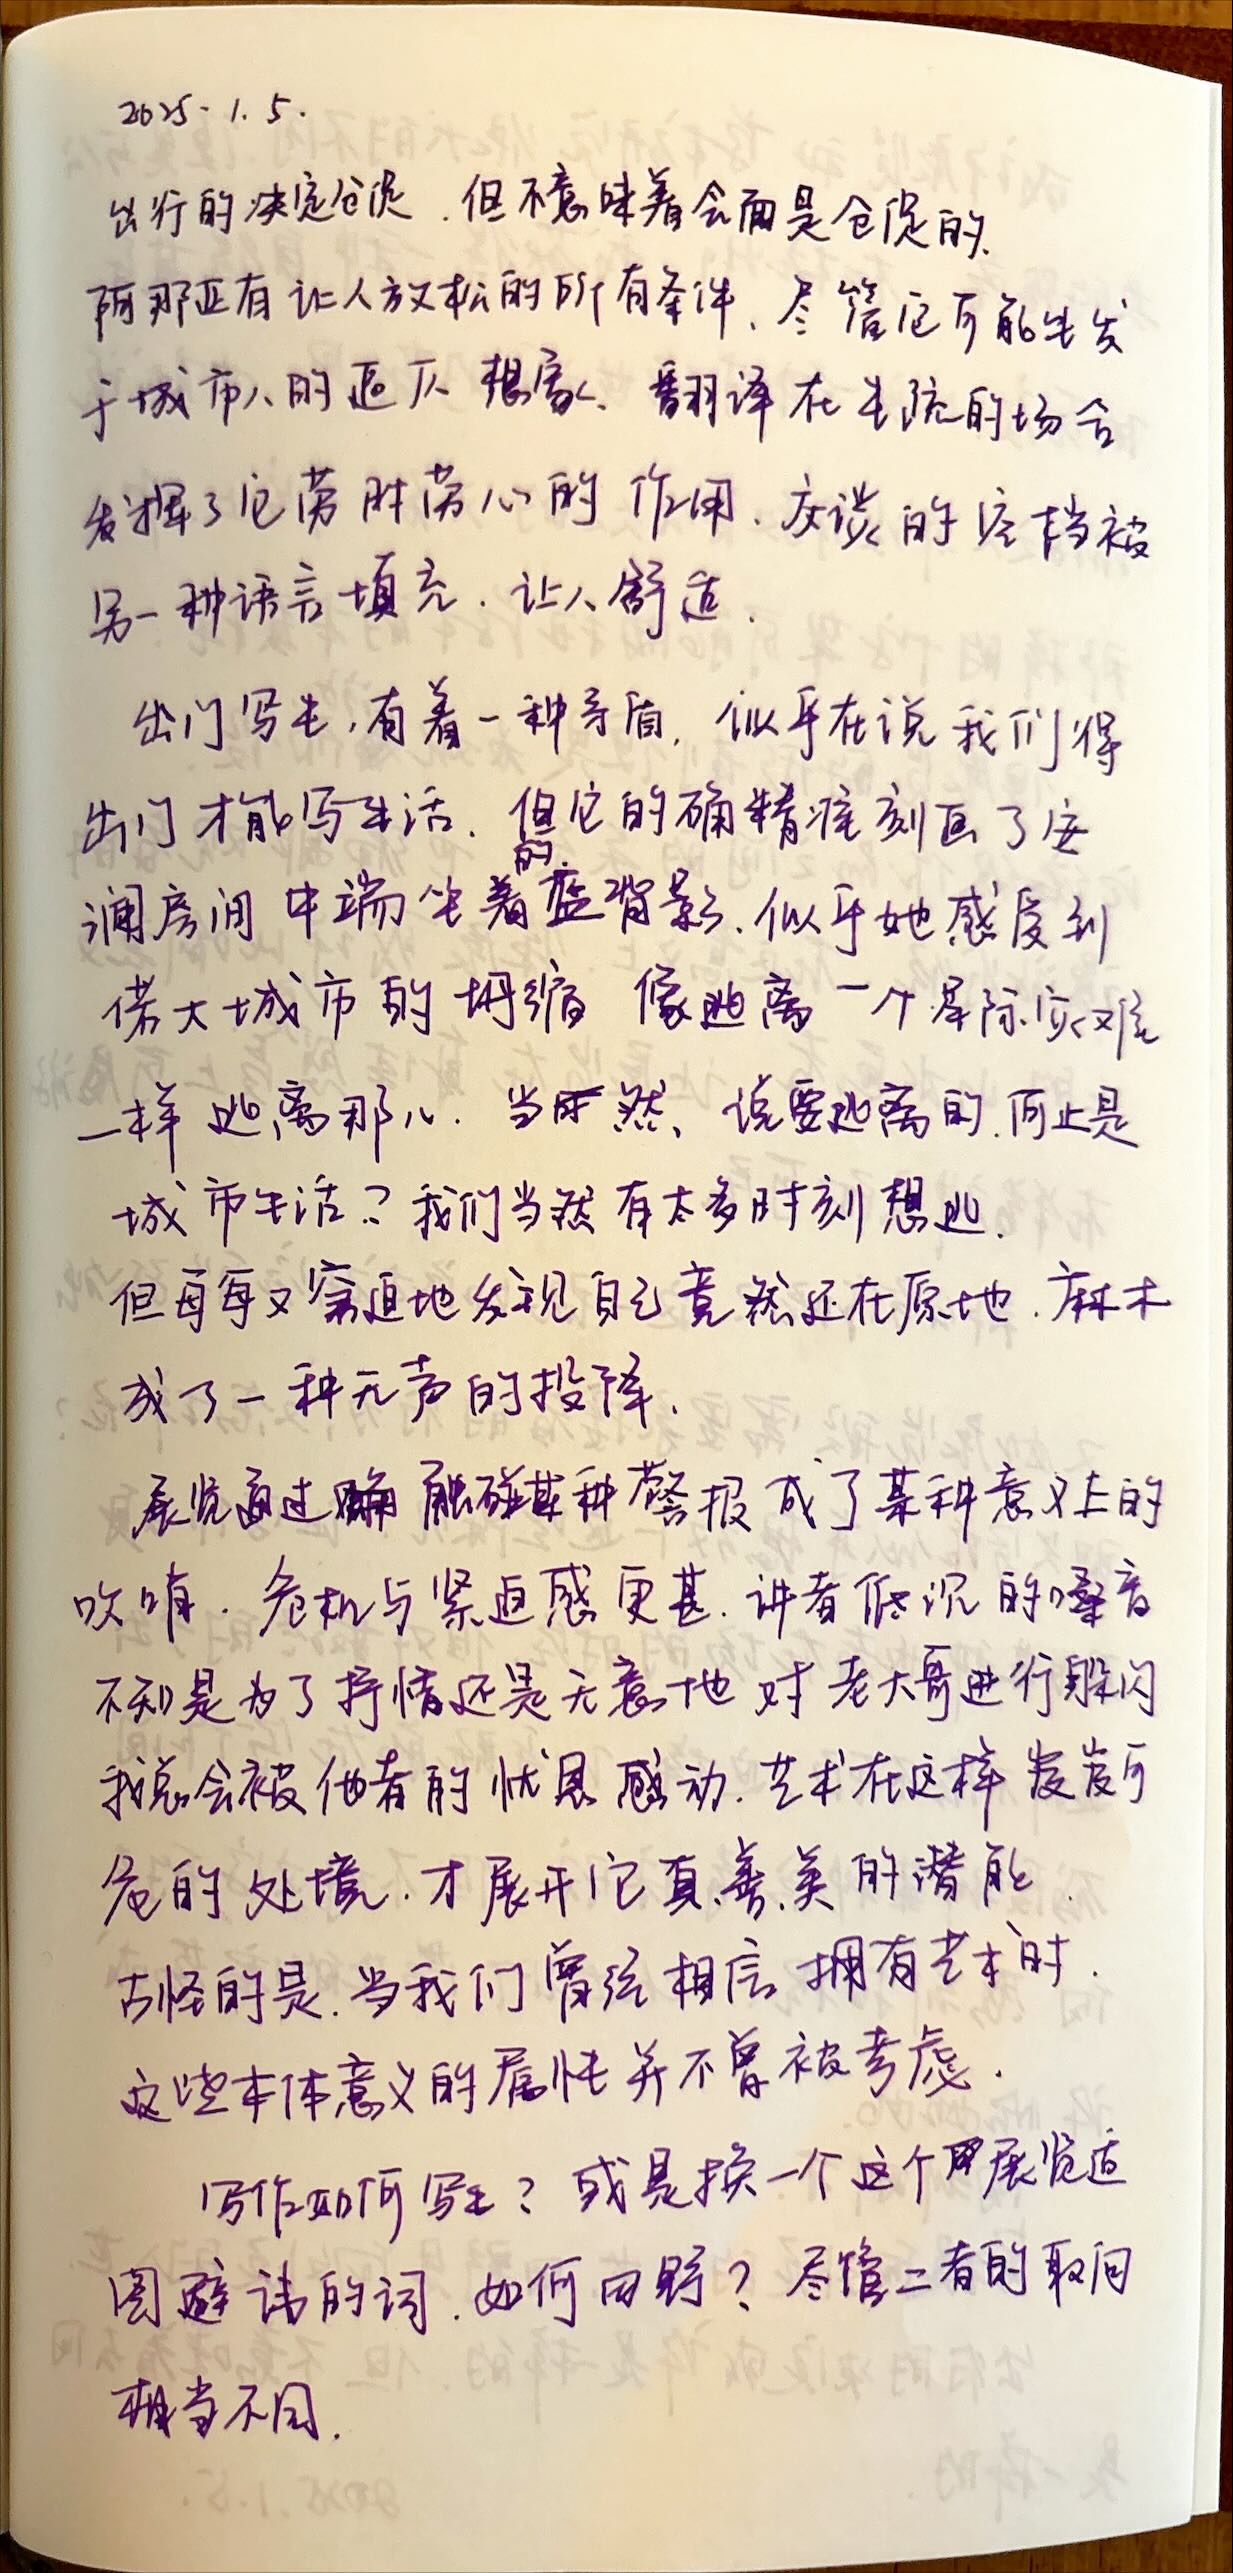 2025.1.5.
出行的决定仓促,但不意味着会面是仓促的、
阿那亚有让人放松的所有条件、尽管它可能出发
于城市人的逼仄想象、翻译在生疏的场合
发挥了它劳肺劳心的作用、交谈的空档被
另一种语言填充.让人舒适.
出门写生,有着一种矛盾,似乎在说我们得
出门才能写生活、但它的确精准刻画了安
澜房间中端坐着的蓝背影、似乎她感受到
偌大城市的坍缩 像逃离一个星际灾难
一样逃离那儿.当然、说要逃离的、何止是
城市生活?我们当然有太多时刻想逃.
但每每又窘迫地发现自己竟然还在原地.麻木
成了一种无声的投降.
展览通过触碰某种警报成了某种意义上的
吹哨.危机与紧迫感更甚.讲者低沉的嗓音
不知是为了抒情还是无意地对老大哥进行躲闪
我总会被他者的忧思感动.艺术在这样岌岌可
危的处境、才展开它真、善、美的潜能.
古怪的是、当我们曾经相信拥有艺术时.
这些本体意义的属性并不曾被考虑.
写作如何写生?或是换一个这个展览适
图避讳的词、如何田野?尽管二者的取向
相当不同.